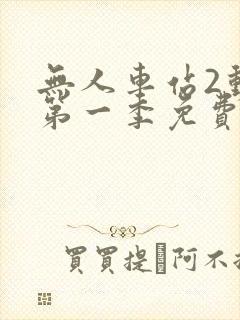 無人車佔2動
第一季免費
買買提 阿不